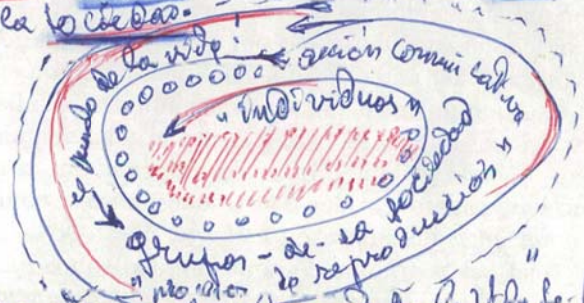 la sociedad.
el mundo de la vida
acción comunicativa
"individuos"
grupos - de - la sociedad
"procesos de reproducción"